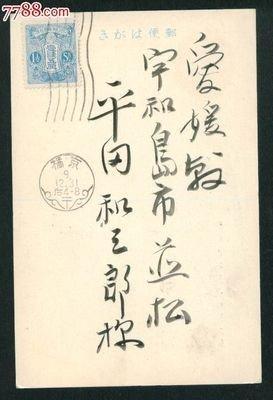 7788.com
郵便はがき
1½ Sn
京橋
9.
12.31
后4-8
愛媛縣
宇和島市並松
平田和三郎様